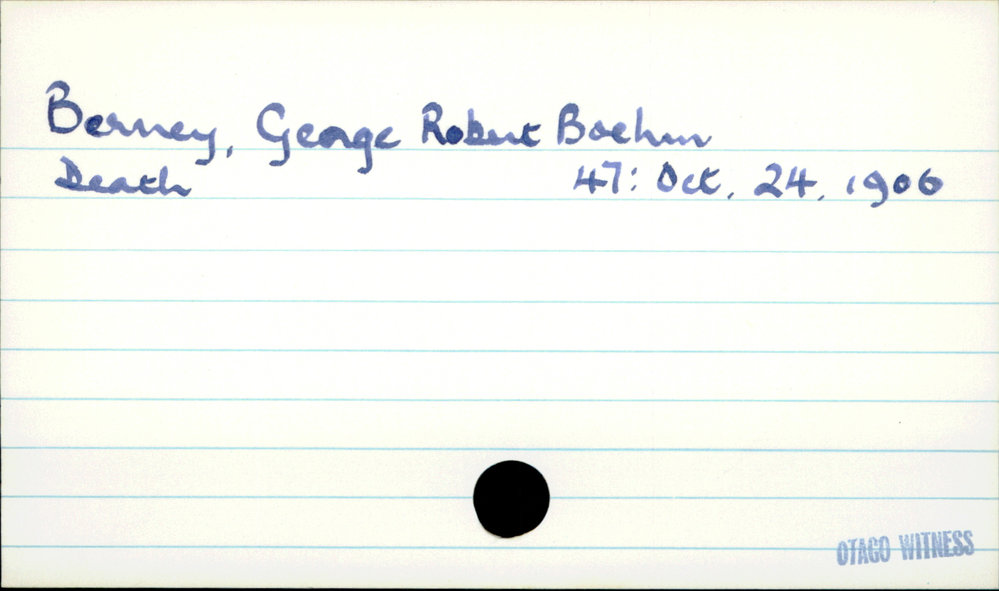 Berney, George Robert Boehm
Death 47: Oct. 24, 1906
OTAGO WITNESS